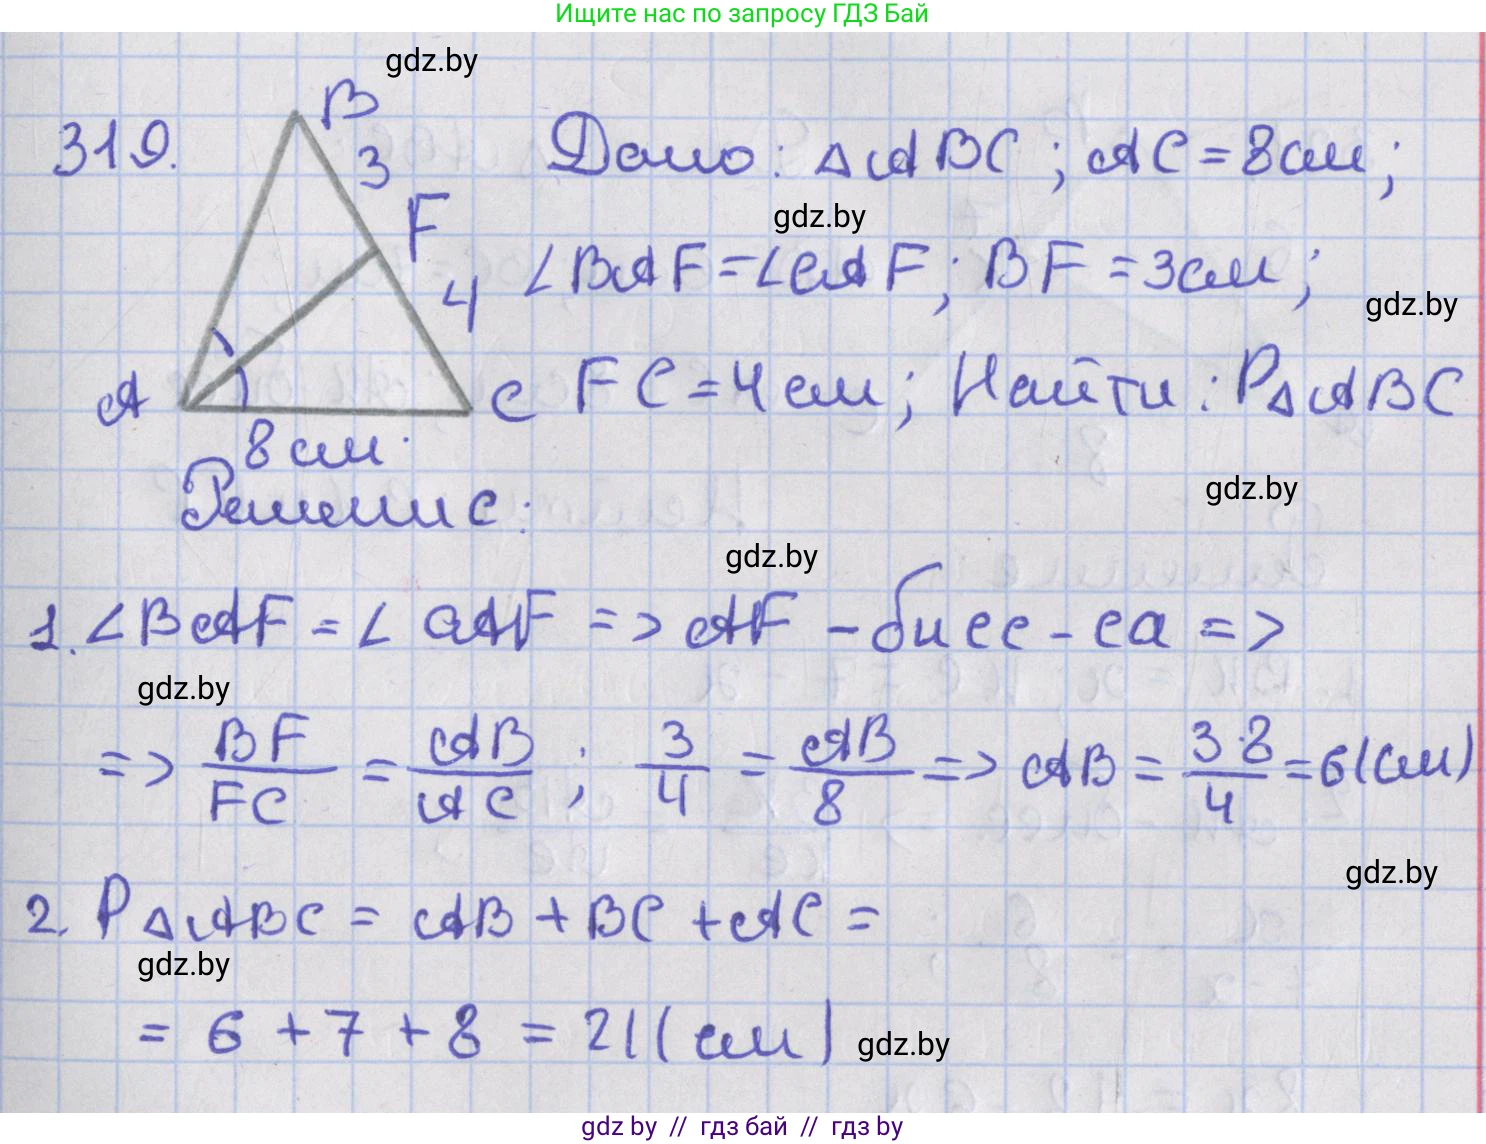 Ищите нас по запросу ГДЗ Бай
gdz.by
319.
B
3
F
4
A
C
8 см.
Дано: △ABC; AC = 8см;
gdz.by
∠BAF = ∠CAF; BF = 3см;
gdz.by
FC = 4см; Найти: P△ABC
gdz.by
Решение:
gdz.by
1. ∠BAF = ∠CAF => AF - бисс-са =>
gdz.by
=> BF/FC = AB/AC; 3/4 = AB/8 => AB = 3·8/4 = 6(см)
gdz.by
2. P△ABC = AB + BC + AC =
gdz.by
= 6 + 7 + 8 = 21(см)
gdz.by
gdz by // гдз бай // гдз by